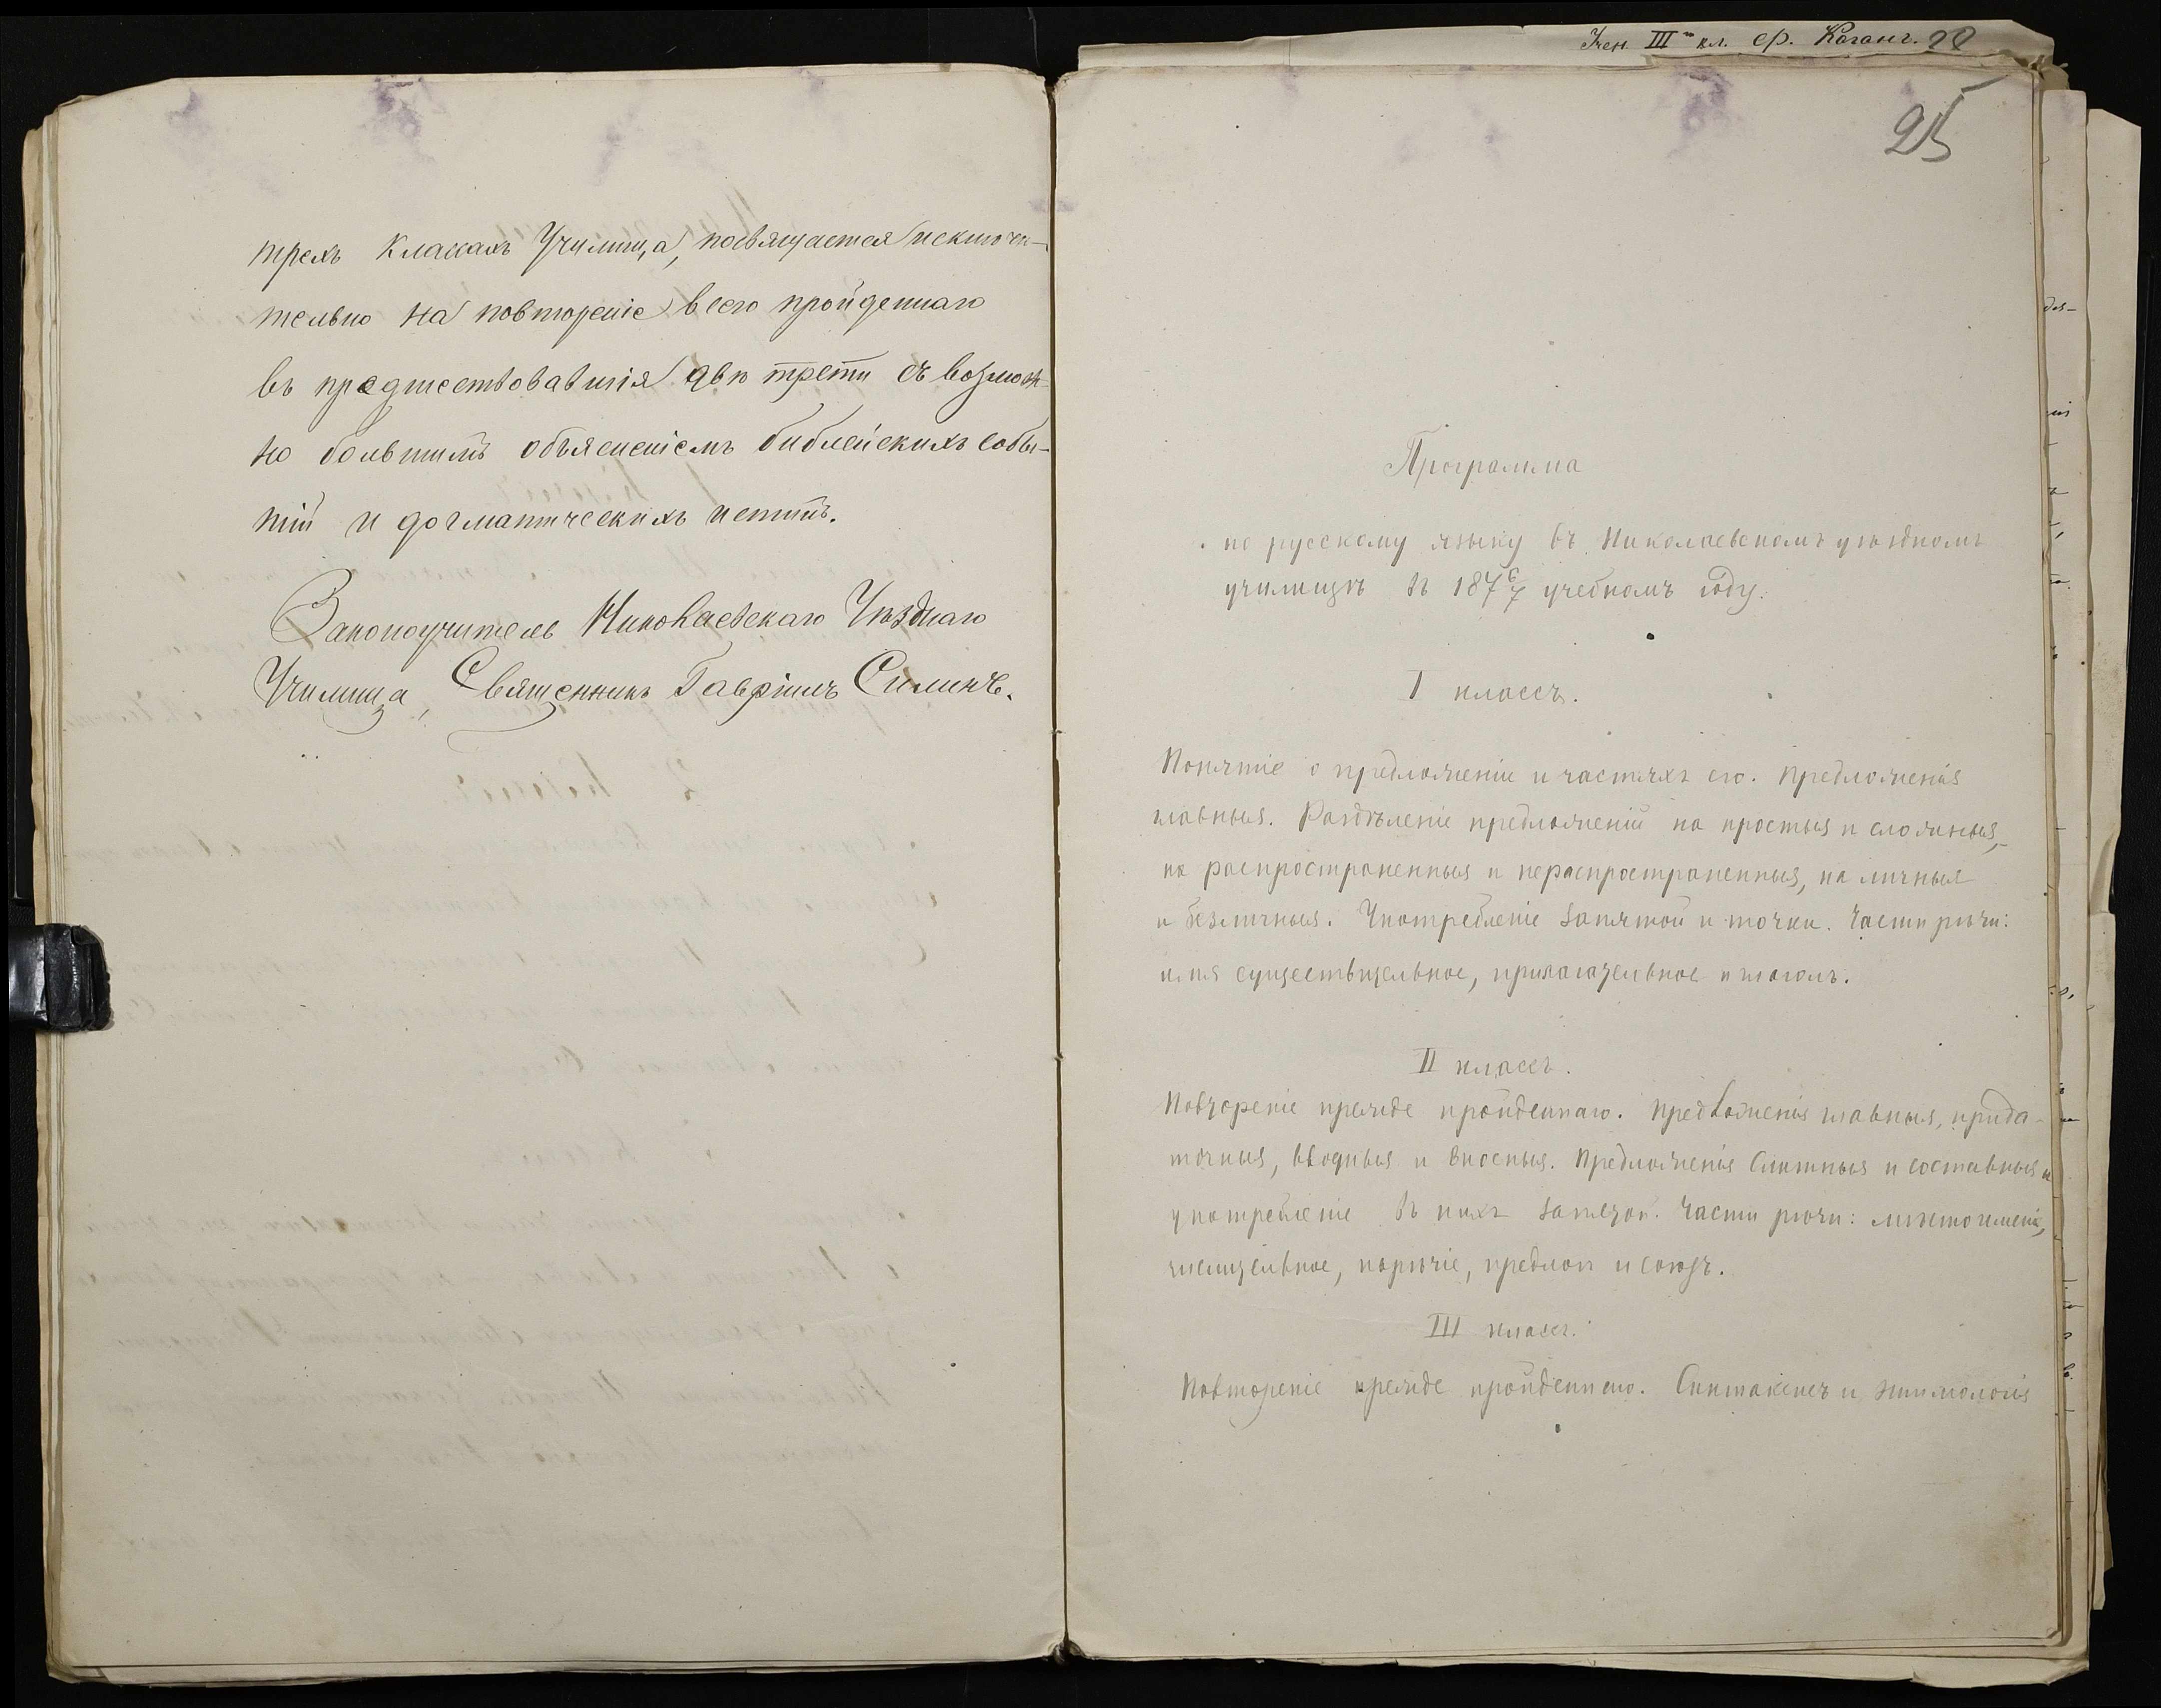 трехъ классахъ Училища, посвящается исключи-
тельно на повтореніе всего пройденнаго
въ предшествовавшія двѣ трети съ возмож-
но большимъ объясненіемъ библейскихъ собы-
тій и догматическихъ истинъ.
Законоучитель Николаевскаго Уѣзднаго
Училища, Священникъ Гавріилъ Силинъ.
Учен III кл. Еф. Коганъ. 22
25
Программа
по русскому языку въ Николаевскомъ уѣздномъ
училищѣ въ 1876/7 учебномъ году.
I классъ.
Понятіе о предложеніи и частяхъ его. Предложенія
главныя. Раздѣленіе предложеній на простыя и сложныя,
на распространенныя и нераспространенныя, на личныя
и безличныя. Употребленіе запятой и точки. Части рѣчи:
имя существительное, прилагательное и глаголъ.
II классъ.
Повтореніе прежде пройденнаго. Предложенія главныя, прида-
точныя, вводныя и вносныя. Предложенія слитныя и составныя и
употребленіе въ нихъ запятой. Части рѣчи: мѣстоименіе,
числительное, нарѣчіе, предлогъ и союзъ.
III классъ.
Повтореніе прежде пройденнаго. Синтаксисъ и этимологія